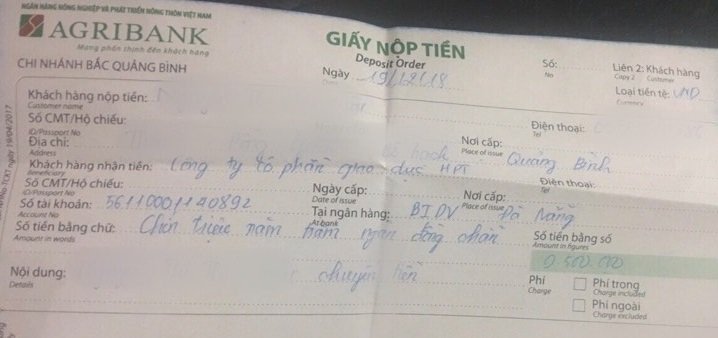 NGÂN HÀNG NÔNG NGHIỆP VÀ PHÁT TRIỂN NÔNG THÔN VIỆT NAM
AGRIBANK
Mang phồn thịnh đến khách hàng
CHI NHÁNH BẮC QUẢNG BÌNH
GIẤY NỘP TIỀN
Deposit Order
Ngày 19/12/18
Số:
No
Liên 2: Khách hàng
Copy 2 Customer
Loại tiền tệ: VND
Currency
Khách hàng nộp tiền:
Customer name
Số CMT/Hộ chiếu:
ID/Passport No
Điện thoại:
Tel
Địa chỉ:
Address
Nơi cấp: Quảng Bình
Place of issue
Khách hàng nhận tiền: Công ty cổ phần giáo dục HPT
Beneficiary
Số CMT/Hộ chiếu:
ID/Passport No
Ngày cấp:
Date of issue
Nơi cấp:
Place of issue
Điện thoại:
Tel
Số tài khoản: 56110001140892
Account No
Tại ngân hàng: BIDV Đà Nẵng
At bank
Số tiền bằng chữ: Chín triệu năm trăm ngàn đồng chẵn
Amount in words
Số tiền bằng số
Amount in figures
9.500.000
Nội dung: chuyển tiền
Details
Phí
Charge
Phí trong
Charge included
Phí ngoài
Charge excluded
19/04/2017